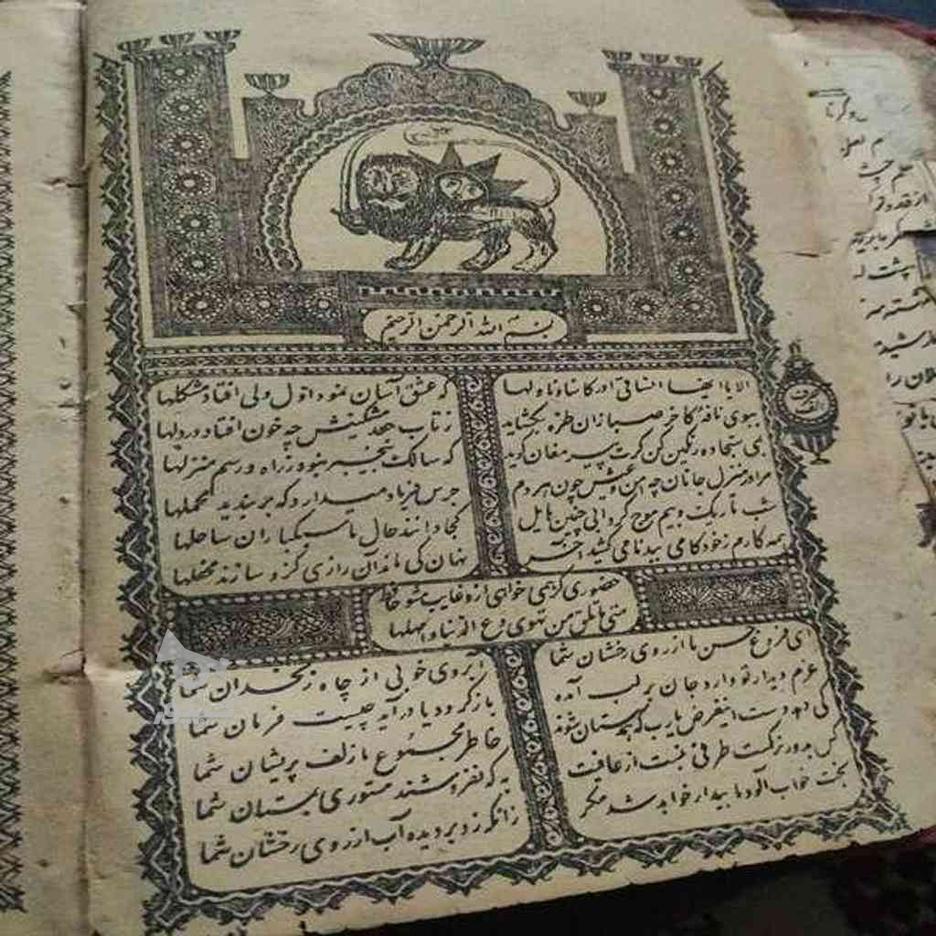 بسم الله الرحمن الرحیم
الا یا ایها الساقی ادر کاسا و ناولها
که عشق آسان نمود اول ولی افتاد مشکلها
ببوی نافهٔ کاخر صبا زان طره بگشاید
ز تاب جعد مشکینش چه خون افتاد در دلها
بمی سجاده رنگین کن گرت پیر مغان گوید
که سالک بیخبر نبود ز راه و رسم منزلها
مرا در منزل جانان چه امن و عیش چون هر دم
جرس فریاد میدارد که بربندید محملها
شب تاریک و بیم موج گردابی چنین هایل
کجا دانند حال ما سبکباران ساحلها
همه کارم ز خود کامی ببدنامی کشید آخر
نهان کی ماند آن رازی کزو سازند محفلها
حضوری گر همی خواهی ازو غایب مشو حافظ
متی ما تلق من تهوی دع الدنیا و اهملها
ای فروغ حسن ماه از روی رخشان شما
آبروی خوبی از چاه زنخدان شما
عزم دیدار تو دارد جان بر لب آمده
باز گردد یا در آید چیست فرمان شما
کی دهد دست این غرض یارب که همدستان شوند
خاطر مجموع ما زلف پریشان شما
کس بدور نرگست طرفی نبست از عافیت
به که نفروشند مستوری بمستان شما
بخت خواب آلود ما بیدار خواهد شد مگر
زانکه زد بر دیده آب از روی رخشان شما
حرف الف